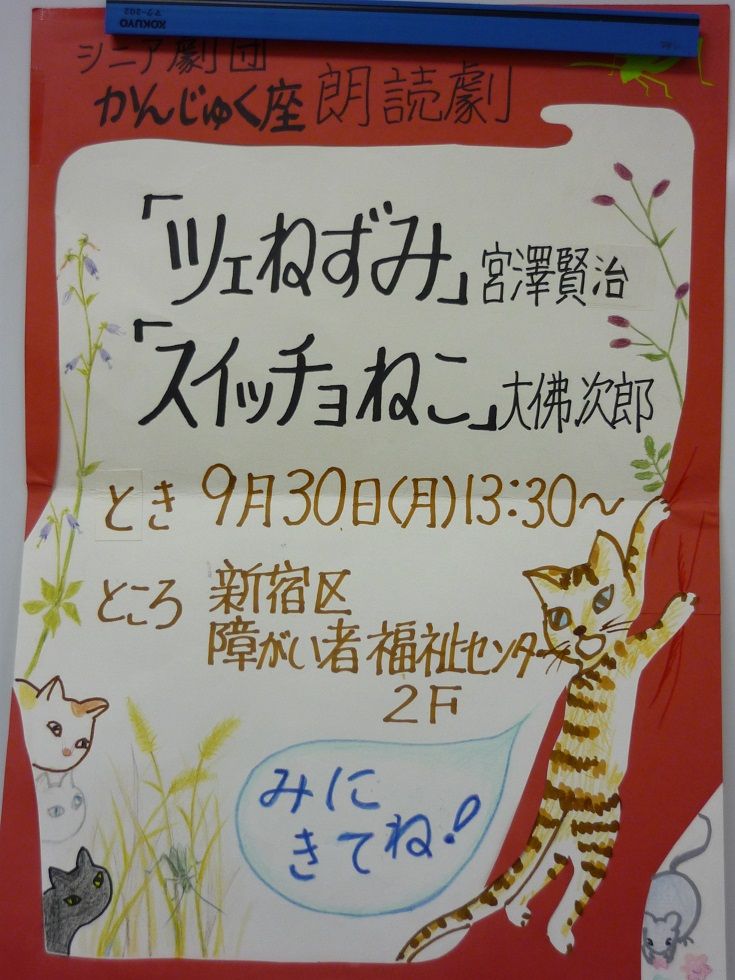 KOKUYO
マク-202
シニア劇団
かんじゅく座 朗読劇
「ツェねずみ」宮澤賢治
「スイッチョねこ」大佛次郎
とき 9月30日(月)13:30～
ところ 新宿区
障がい者福祉センター
2F
みに
きてね!